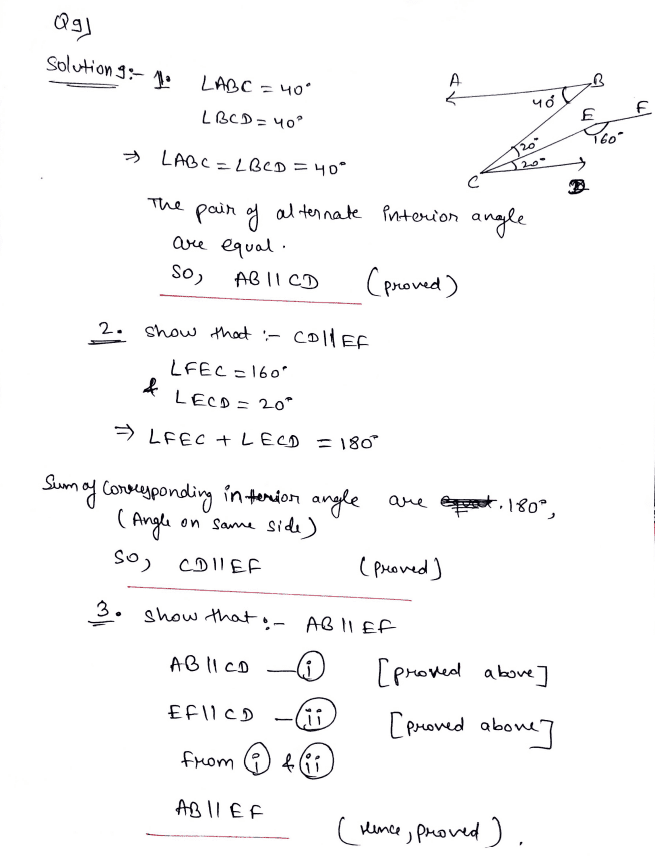 Q9)
Solution 9:- 1.
LABC = 40°
LBCD = 40°
⇒ LABC = LBCD = 40°
The pair of alternate interior angle
are equal.
So, AB || CD (proved)
A
B
40°
E
F
160°
20°
20°
C
D
2. Show that :- CD || EF
LFEC = 160°
& LECD = 20°
⇒ LFEC + LECD = 180°
Sum of Corresponding interior angle are 180°,
(Angle on same side)
So, CD || EF (proved)
3. Show that :- AB || EF
AB || CD — i [proved above]
EF || CD — ii [proved above]
from i & ii
AB || EF
(Hence, proved).